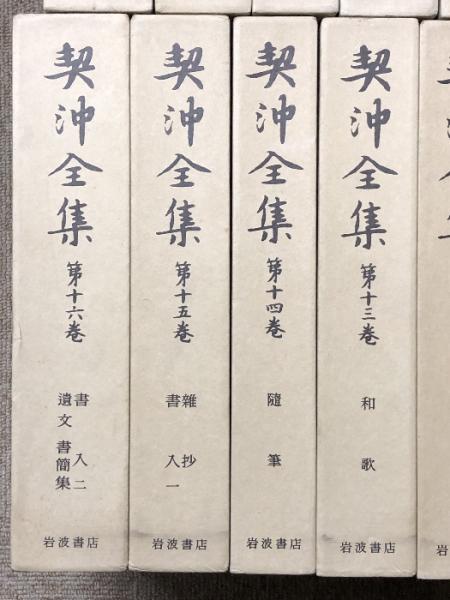 契沖全集
第十六巻
書入二
遺文 書簡集
岩波書店
契沖全集
第十五巻
雜抄
書入一
岩波書店
契沖全集
第十四巻
隨筆
岩波書店
契沖全集
第十三巻
和歌
岩波書店